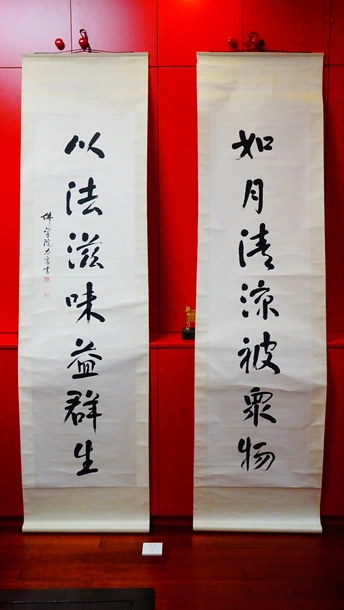 如月清涼被衆物
以法滋味益群生